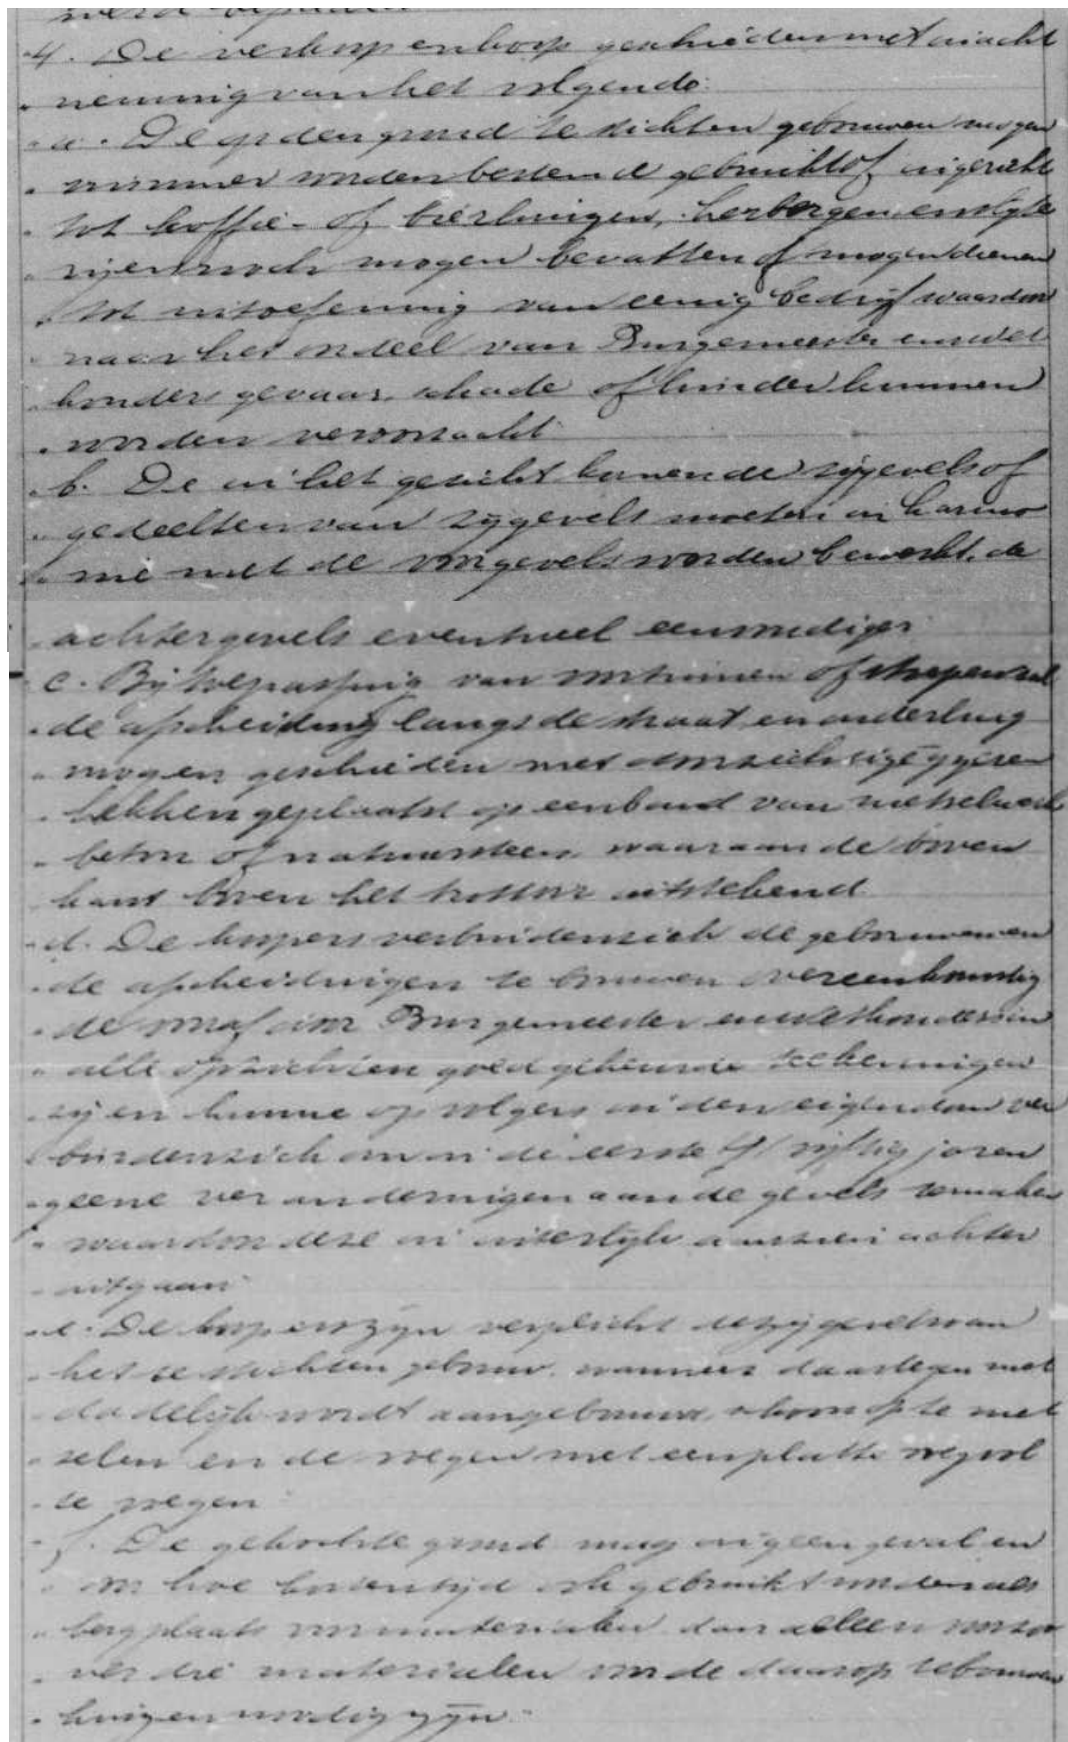 4. De verkoop en koop geschieden met inacht
neming van het volgende:
a. De op den grond te stichten gebouwen mogen
nimmer worden bestemd gebruikt of ingericht
tot koffie- of bierhuizen, herbergen en slijte
rijen noch mogen bevatten of mogen dienen
tot uitoefening van eenig bedrijf waardoor
naar het oordeel van Burgemeester en wet
houders gevaar, schade of hinder kunnen
worden veroorzaakt.
b. De in het gezicht komende zijgevels of
gedeelten van zijgevels moeten in harmo
nie met de voorgevels worden bewerkt, de
achtergevels eventueel eenvoudiger.
c. Bij toepassing van voortuinen of stoepen zal
de afscheiding langs de straat en onderling
mogen geschieden met doorzichtige ijzeren
hekken geplaatst op een band van metselwerk
beton of natuursteen, waaraan de boven
kant boven het trottoir uitstekend.
d. De koopers verbinden zich de gebouwen en
de afscheidingen te bouwen overeenkomstig
de vooraf door Burgemeester en wethouders in
alle opzichten goedgekeurde teekeningen
zij en hunne opvolgers in den eigendom ver
binden zich om in de eerste vijftig jaren
geene veranderingen aan de gevels te maken
waardoor deze in uiterlijk aanzien achter
uitgaan.
e. De koopers zijn verplicht de zijgevels van
het te stichten gebouw, wanneer daartegen niet
dadelijk wordt aangebouwd, schoon op te met
selen en de voegen met een platte voeg vol
te voegen.
f. De gekochte grond mag in geen geval en
voor hoe korten tijd ook gebruikt worden als
bergplaats voor materialen dan alleen voor zoo
ver die materialen voor de daarop te bouwen
huizen noodig zijn.